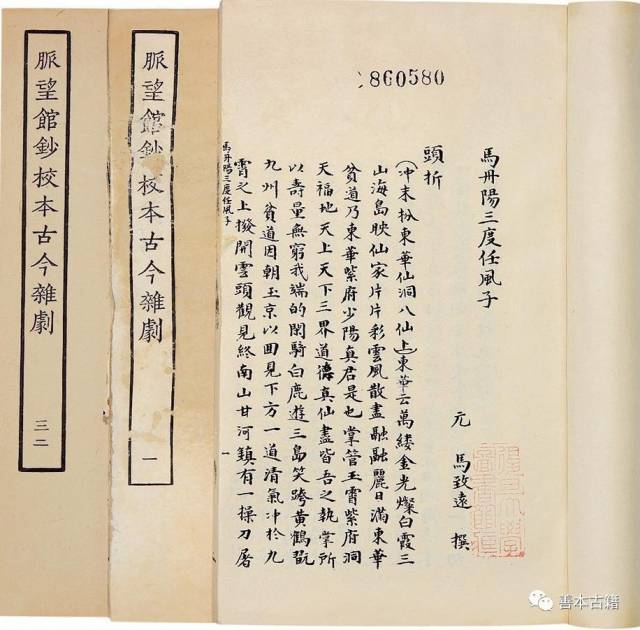 860580
馬丹陽三度任風子
元 馬致遠 撰
頭折
(冲末扮東華仙洞八仙上)東華云萬縷金光燦白霞三
山海島映仙家片片彩雲風散盡融融麗日滿東華
貧道乃東華紫府少陽真君是也掌管玉霄紫府洞
天福地天上天下三界道德真仙盡皆吾之執掌所
以壽量無窮我端的閑騎白鹿遊三島笑跨黃鶴翫
九州貧道因朝玉京以囬見下方一道清氣冲於九
霄之上撥開雲頭觀見終南山甘河鎮有一操刀屠
馬丹陽三度任風子
一
脈望館鈔校本古今雜劇
一
脈望館鈔校本古今雜劇
三二
善本古籍